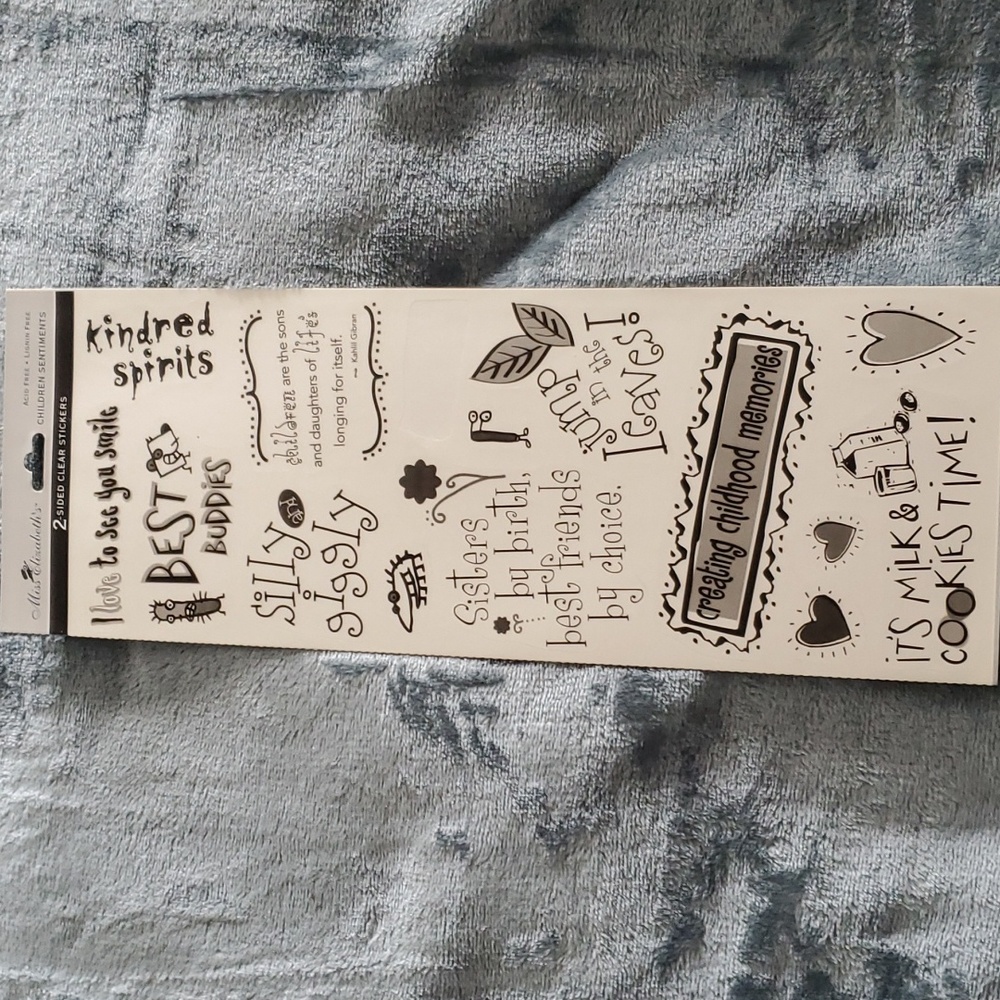 Miss Elizabeth's
ACID FREE • LIGNIN FREE
CHILDREN SENTIMENTS
2-SIDED CLEAR STICKERS
I love to see you smile
kindred
spirits
BEST
BUDDIES
silly
giggly
children are the sons
and daughters of life's
longing for itself.
~ Kahlil Gibran
Sisters
by birth,
best friends
by choice.
Jump
in the
leaves!
creating childhood memories
IT'S MILK &
COOKIES TIME!